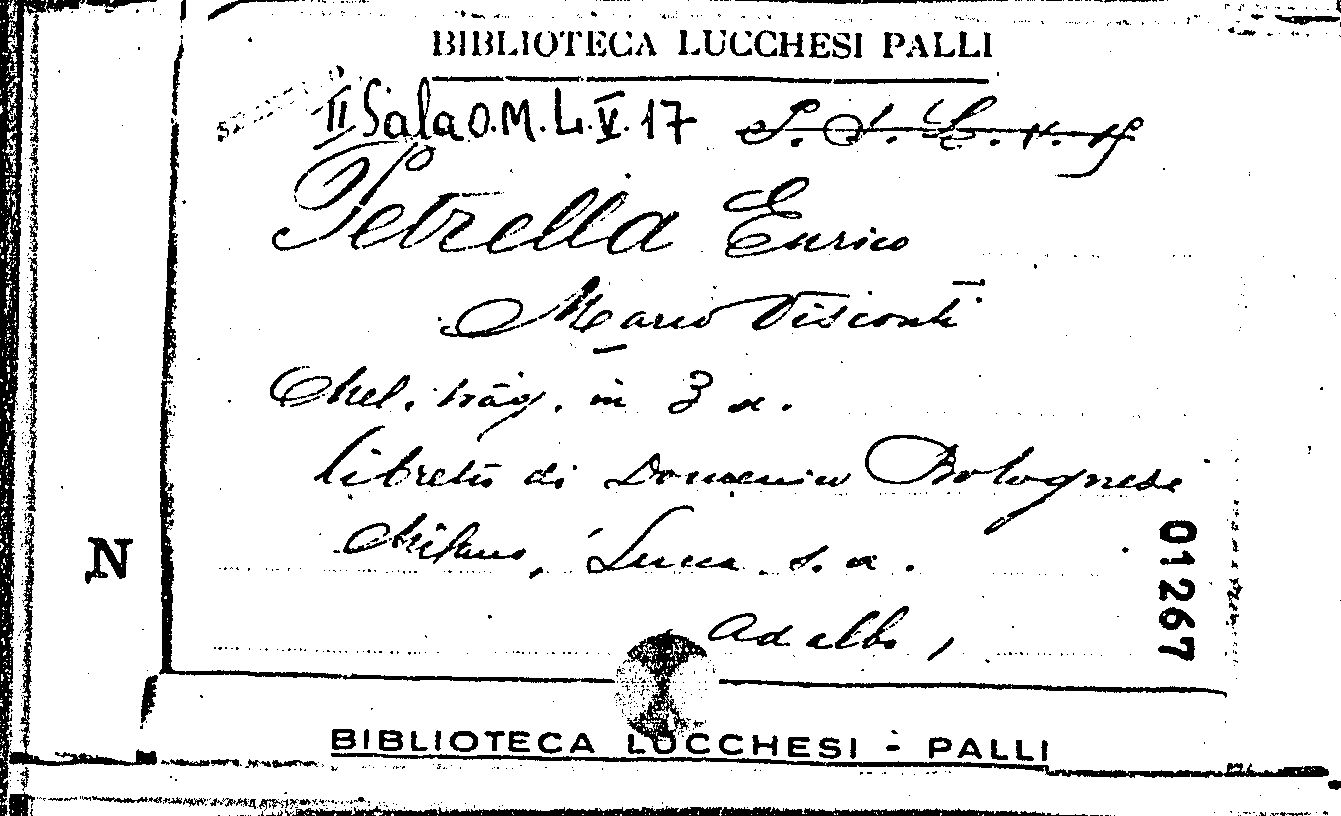 BIBLIOTECA LUCCHESI PALLI
II Sala O.M. L.V. 17
Petrella Enrico
Marco Visconti
Mel. trag. in 3 a.
libretto di Domenico Bolognese
Milano, Lucca s. a.
ad albo,
N
01267
BIBLIOTECA LUCCHESI - PALLI